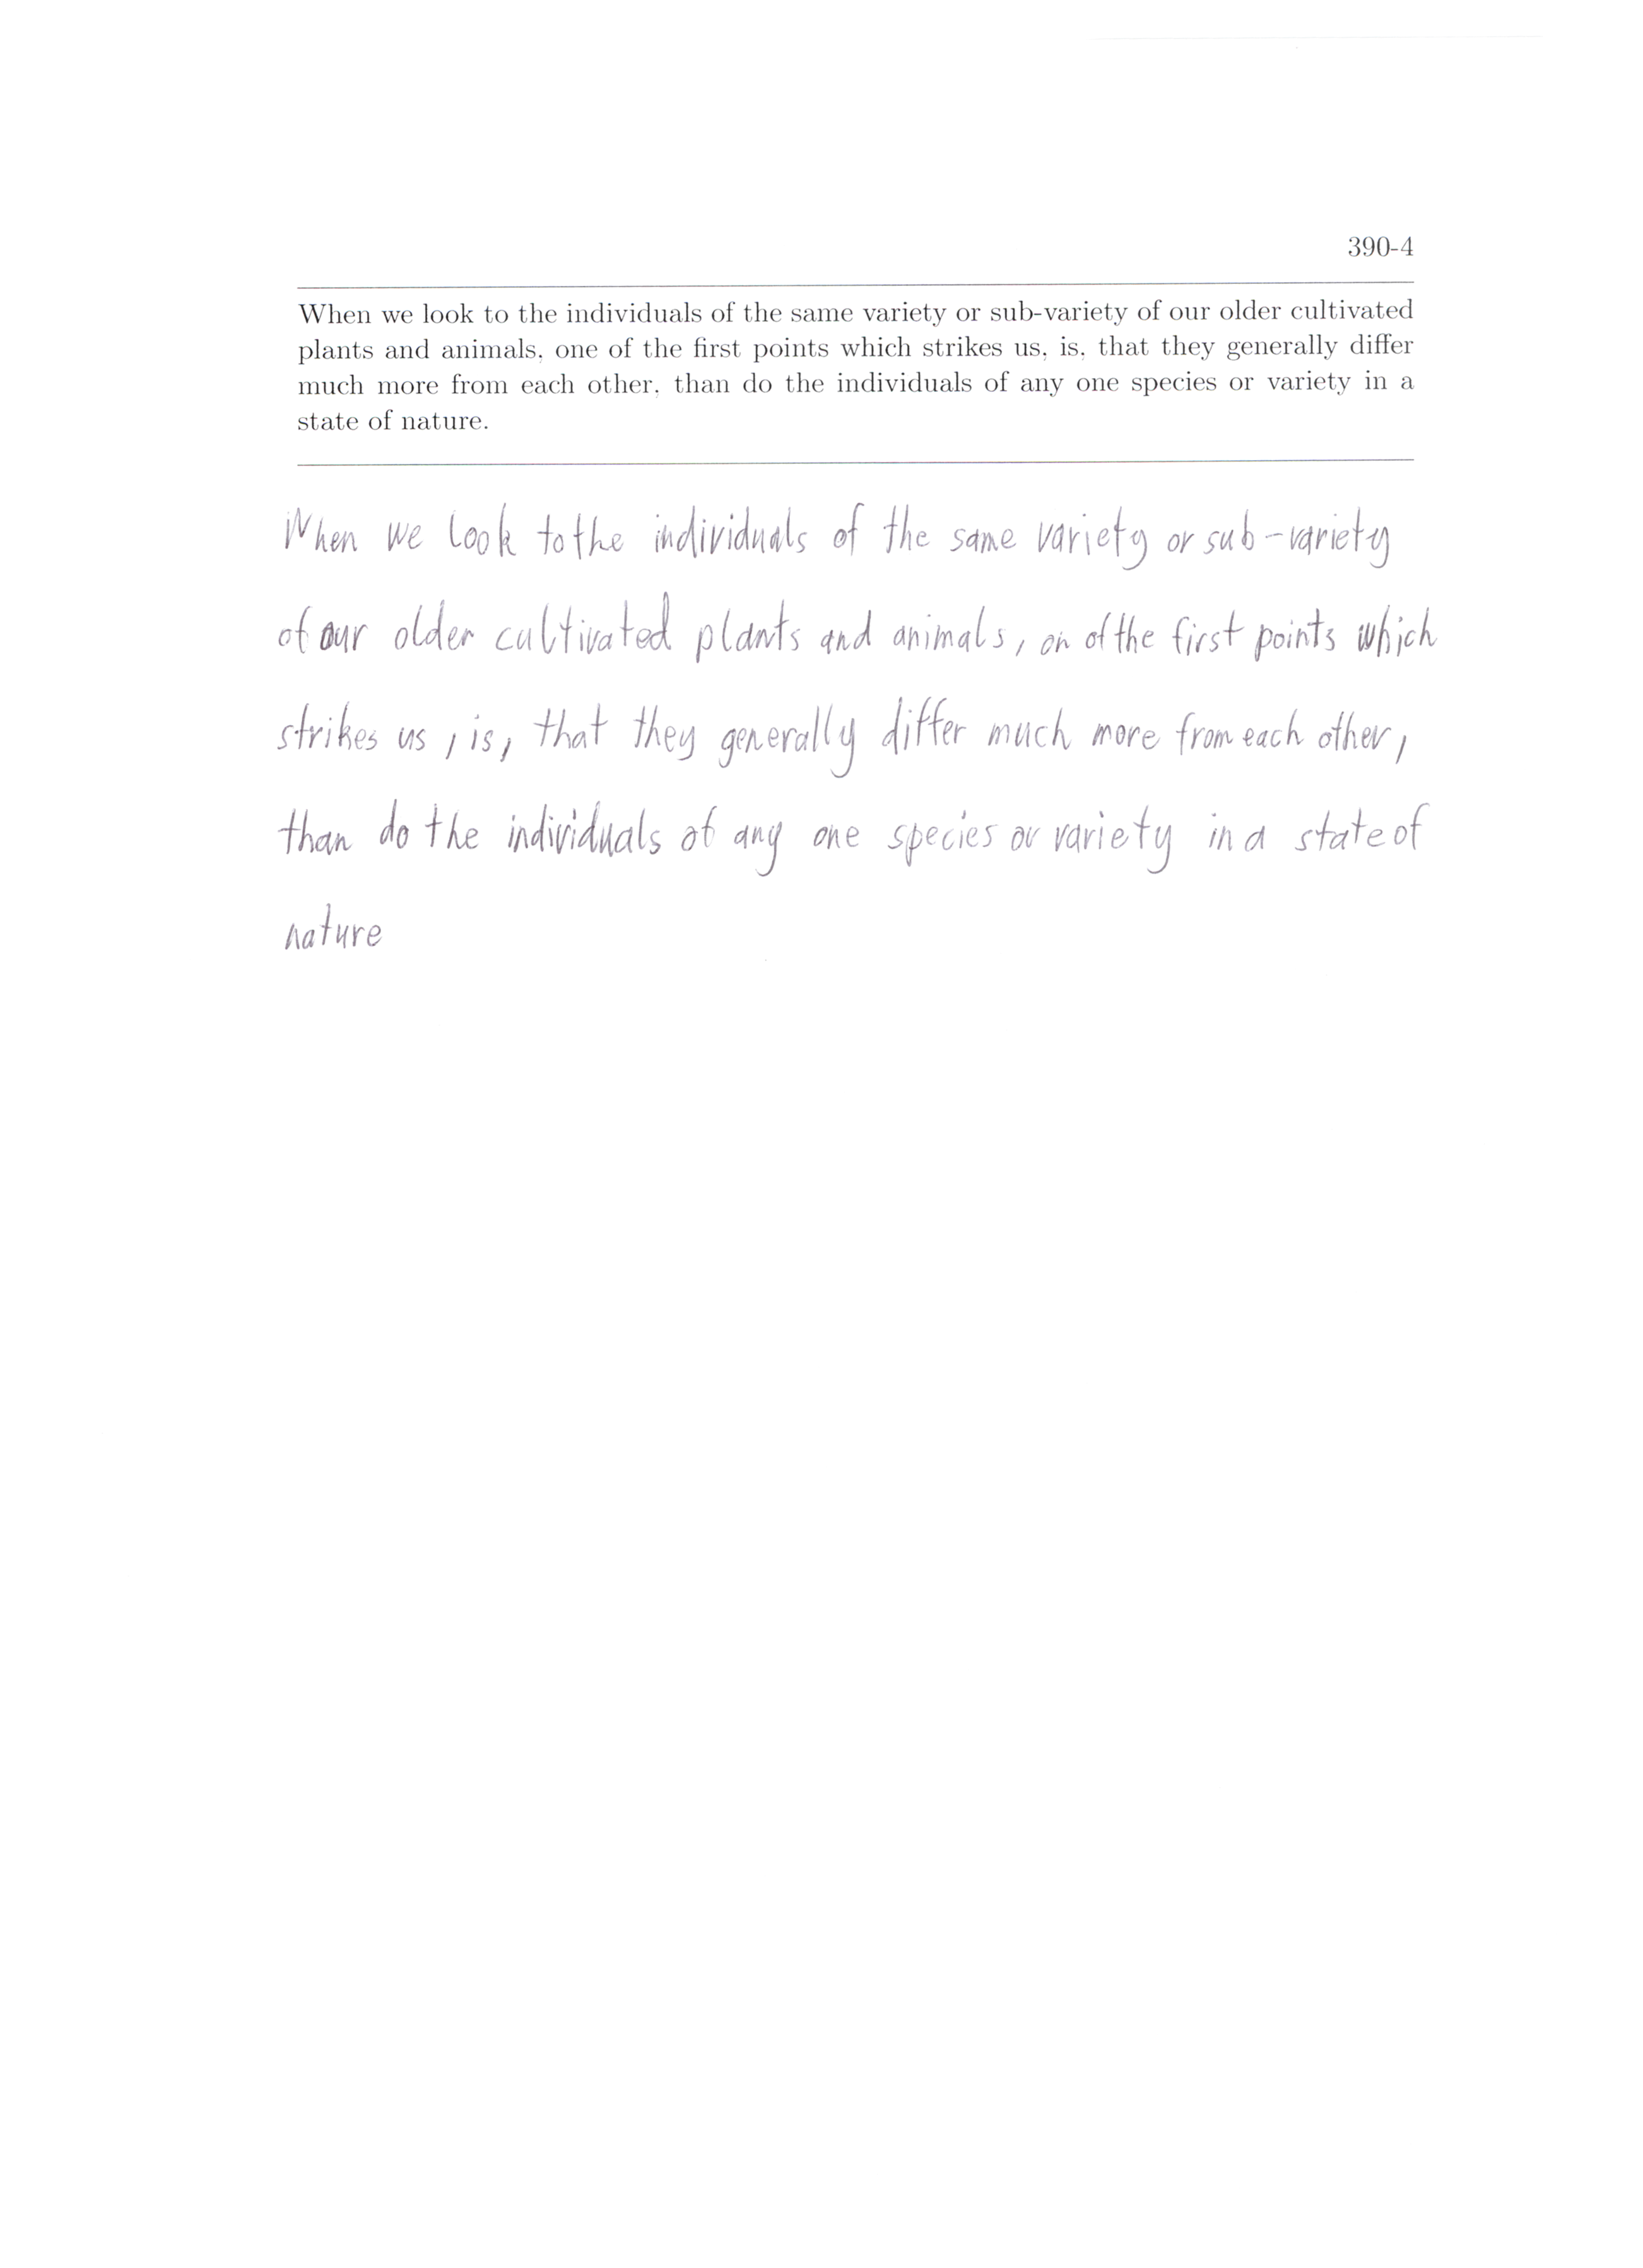 390-4
When we look to the individuals of the same variety or sub-variety of our older cultivated
plants and animals, one of the first points which strikes us, is, that they generally differ
much more from each other, than do the individuals of any one species or variety in a
state of nature.
When we look to the individuals of the same variety or sub-variety
of our older cultivated plants and animals, on of the first points which
strikes us, is, that they generally differ much more from each other,
than do the individuals of any one species or variety in a state of
nature